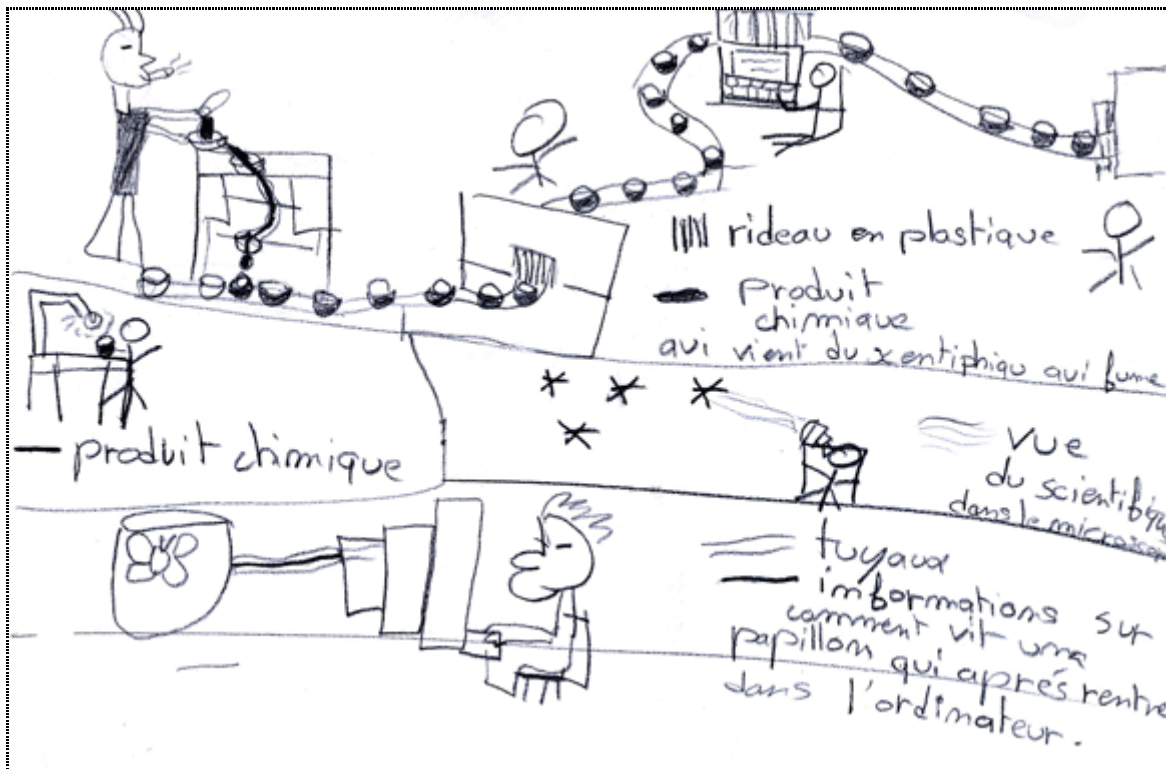 rideau en plastique
produit
chimique
qui vient du xentiphiqu qui fume
produit chimique
vue
du scientifique
dans le
tuyaux
informations sur
comment vit una
papillon qui aprés rentre
dans l'ordinateur.